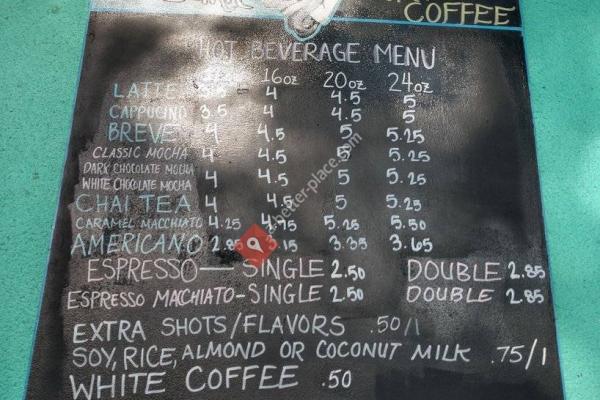 COFFEE
HOT BEVERAGE MENU
12oz 16oz 20oz 24oz
LATTE 3.5 4 4.5 5
CAPPUCINO 3.5 4 4.5 5
BREVE 4 4.5 5 5.25
CLASSIC MOCHA 4 4.5 5 5.25
DARK CHOCOLATE MOCHA 4 4.5 5 5.25
WHITE CHOCOLATE MOCHA 4 4.5 5 5.25
CHAI TEA 4 4.5 5 5.25
CARAMEL MACCHIATO 4.25 4.75 5.25 5.50
AMERICANO 2.85 3.35 3.65
ESPRESSO — SINGLE 2.50 DOUBLE 2.85
ESPRESSO MACCHIATO - SINGLE 2.50 DOUBLE 2.85
EXTRA SHOTS/FLAVORS .50/1
SOY, RICE, ALMOND OR COCONUT MILK .75/1
WHITE COFFEE .50
3-better-place.com